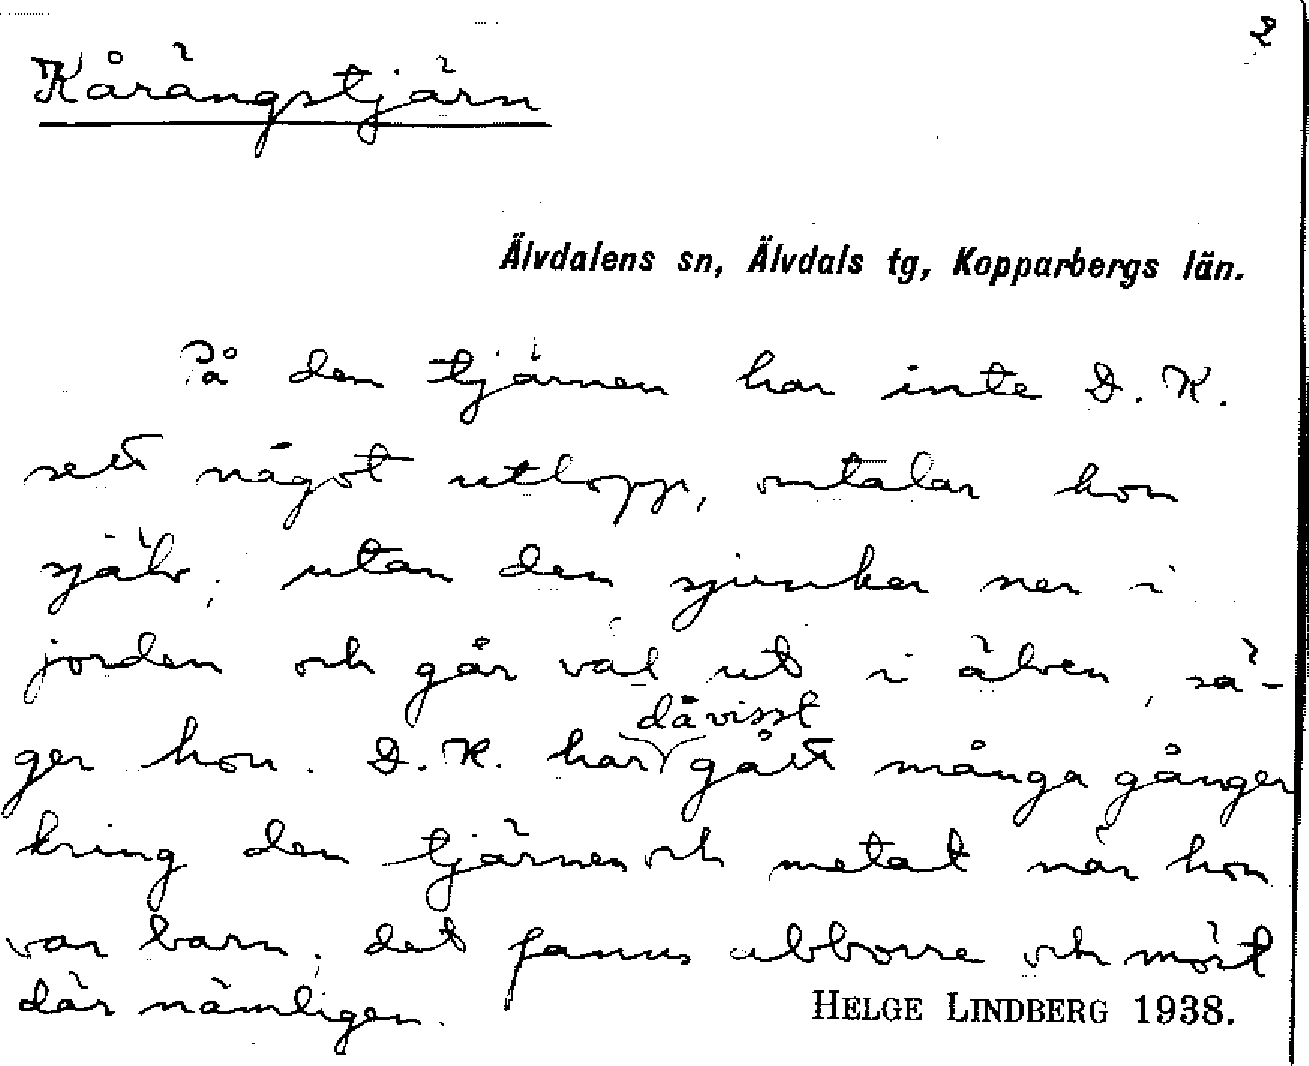 2
Kårängstjärn
Älvdalens sn, Älvdals tg, Kopparbergs län.
På den tjärnen har inte D. K.
sett något utlopp, omtalar hon
själv; utan den sjunker ner i
jorden och går väl ut i älven, sä-
ger hon. D. K. har då visst gått många gånger
kring den tjärnen och metat när hon
var barn; det fanns abborre och mört
där nämligen.
HELGE LINDBERG 1938.